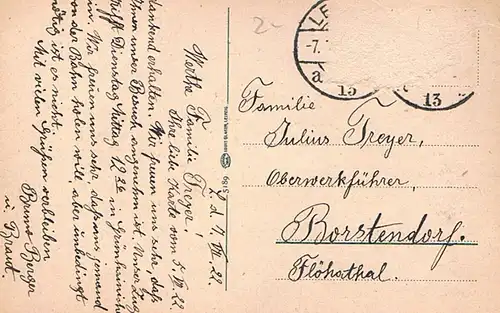 L. d. 7. VII. 22.
Werthe Familie Treyer!
Ihre liebe Karte vom 5. VII. 22
dankend erhalten. Wir freuen uns sehr, daß
Ihnen unser Besuch angenehm ist. Unser Zug
trifft Dienstag Mittag 12 36 in Grünhainichen
ein. Wir freuen uns sehr, daß uns jemand
von der Bahn holen will, aber unbedingt
nötig ist es nicht.
Mit vielen Grüßen verbleiben
Bruno Berger
u. Braut.
2-
LE
-7.
a
15
13
Familie
Julius Treyer,
Oberwerkführer,
Borstendorf.
Flöhathal.